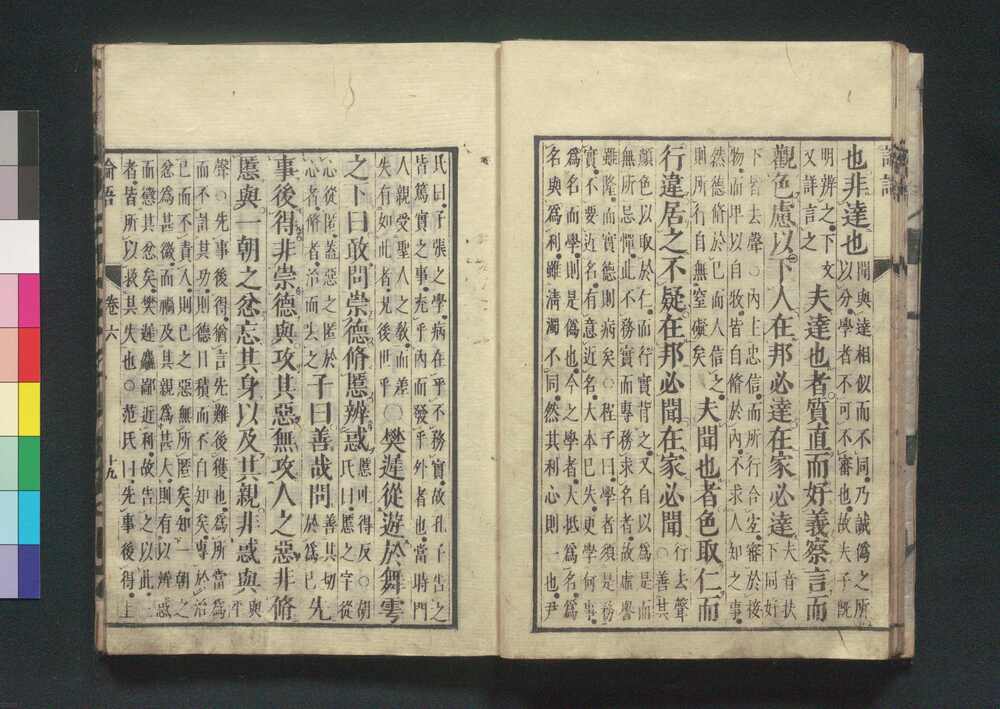 也非達也
聞與達相似而不同乃誠偽之所
以分學者不可不審也故夫子既
明辨之下文
又詳言之
夫達也者質直而好義察言而
觀色慮以下人在邦必達在家必達
夫音扶
下同好
下皆去聲○內主忠信而所行合宜審於接
物而卑以自牧皆自脩於內不求人知之事
然德脩於己而人信之
則所行自無窒礙矣
夫聞也者色取仁而
行違居之不疑在邦必聞在家必聞
行去聲
○善其
顏色以取於仁而行實背之又自以為是而
無所忌憚此不務實而專務求名者故虛譽
雖隆而實德則病矣○程子曰學者須是務
實不要近名有意近名大本已失更學何事
為名而學則是偽也今之學者大抵為名為
名與為利雖清濁不同然其利心則一也尹
氏曰子張之學病在乎不務實故孔子告之
皆篤實之事充乎內而發乎外者也當時門
人親受聖人之教而差
失有如此者況後世乎
○樊遲從遊於舞雩
之下曰敢問崇德脩慝辨惑
慝吐得反○胡
氏曰慝之字從
心從匿蓋惡之匿於
心者脩者治而去之
子曰善哉問
善其切
於為己
先
事後得非崇德與攻其惡無攻人之惡非脩
慝與一朝之忿忘其身以及其親非惑與
與平
聲○先事後得猶言先難後獲也為所當為
而不計其功則德日積而不自知矣專於治
己而不責人則己之惡無所匿矣知一朝之
忿為甚微而禍及其親為甚大則有以辨惑
而懲其忿矣樊遲麤鄙近利故告之以此三
者皆所以救其失也○范氏曰先事後得上
論語 卷六 十九